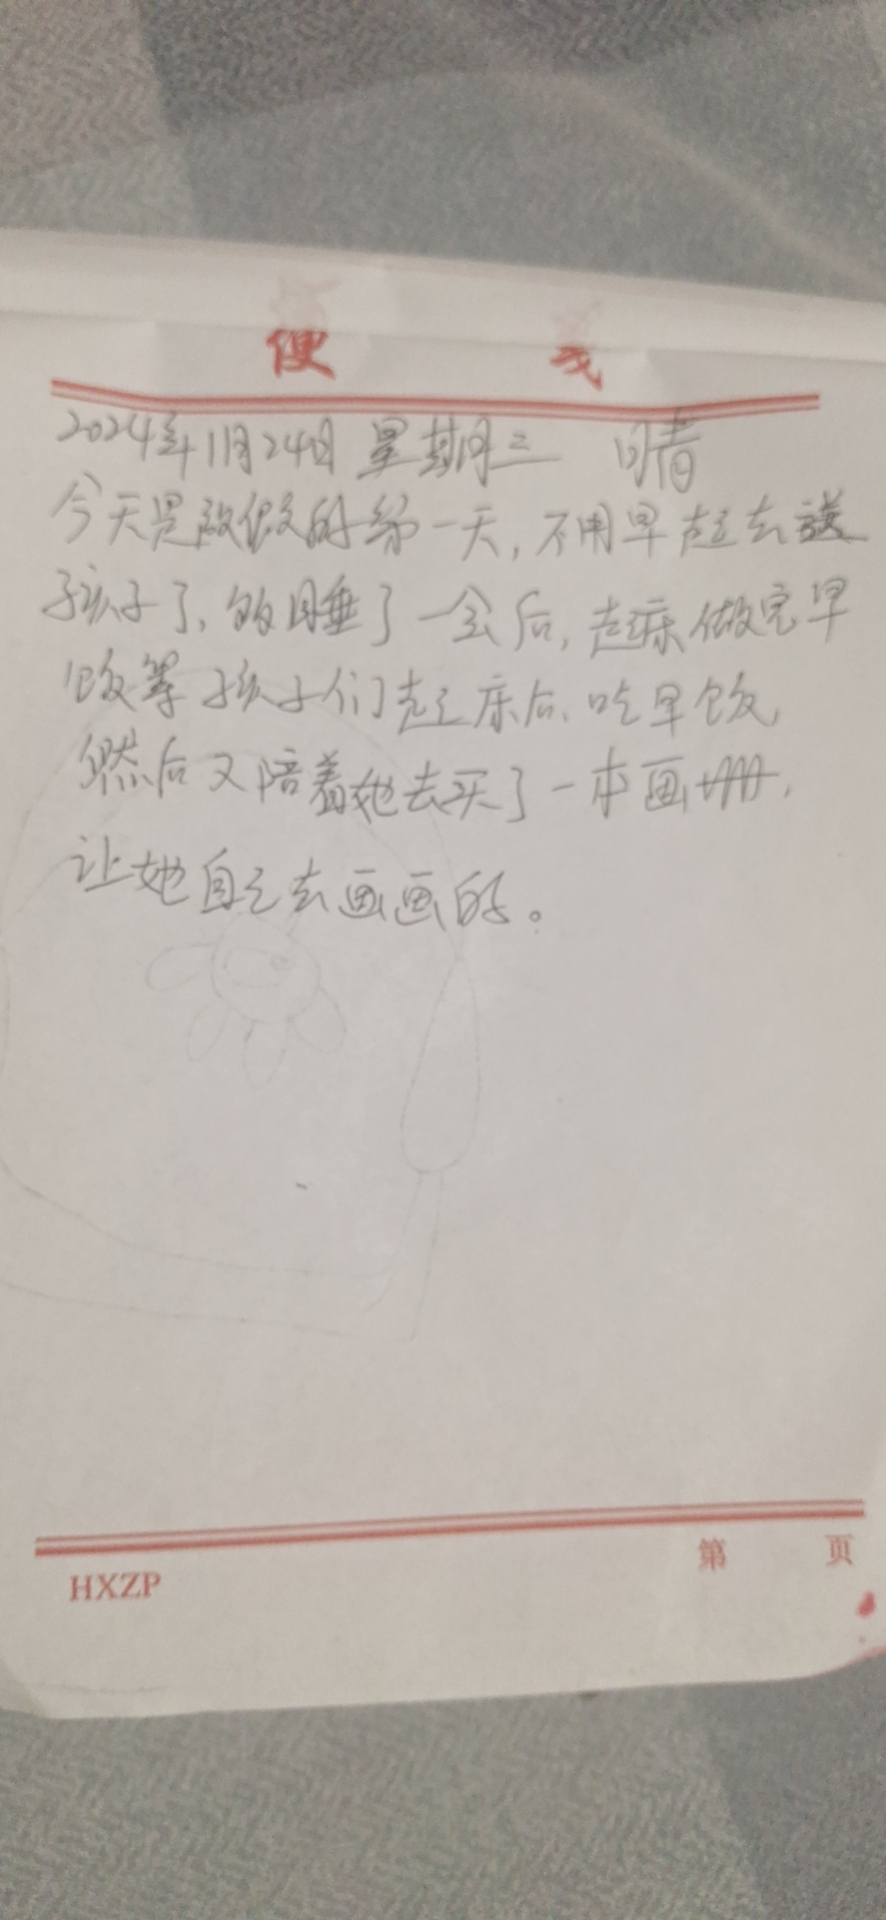 便 笺
2024年11月24日 星期三 晴
今天是放假的第一天,不用早起去送
孩子了,的睡了一会后,起床做完早
饭等孩子们起床后、吃早饭,
然后又陪着她去买了一本画册,
让她自己去画画的。
HXZP
第 页